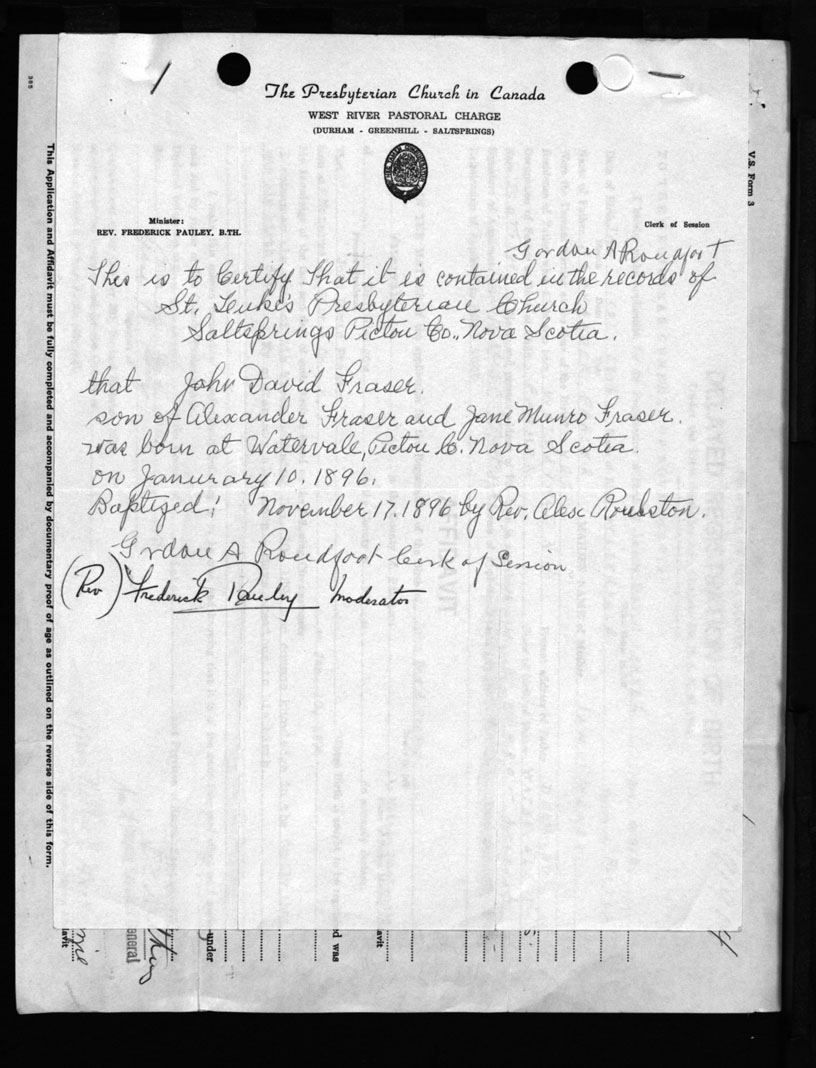 The Presbyterian Church in Canada
WEST RIVER PASTORAL CHARGE
(DURHAM - GREENHILL - SALTSPRINGS)
Minister:
REV. FREDERICK PAULEY, B.TH.
Clerk of Session
Gordon A Roudfoot
This is to Certify That it is contained in the records of
St. Luke's Presbyterian Church
Saltsprings Pictou Co., Nova Scotia.
that John David Fraser.
son of Alexander Fraser and Jane Munro Fraser.
was born at Watervale, Pictou Co. Nova Scotia.
on Janurary 10. 1896.
Baptized: November 17. 1896 by Rev. Alex Roulston.
Gordon A Roudfoot Clerk of Session
(Rev) Frederick Pauley Moderator
This Application and Affidavit must be fully completed and accompanied by documentary proof of age as outlined on the reverse side of this form.
V.S. Form 3
under
d was
eneral